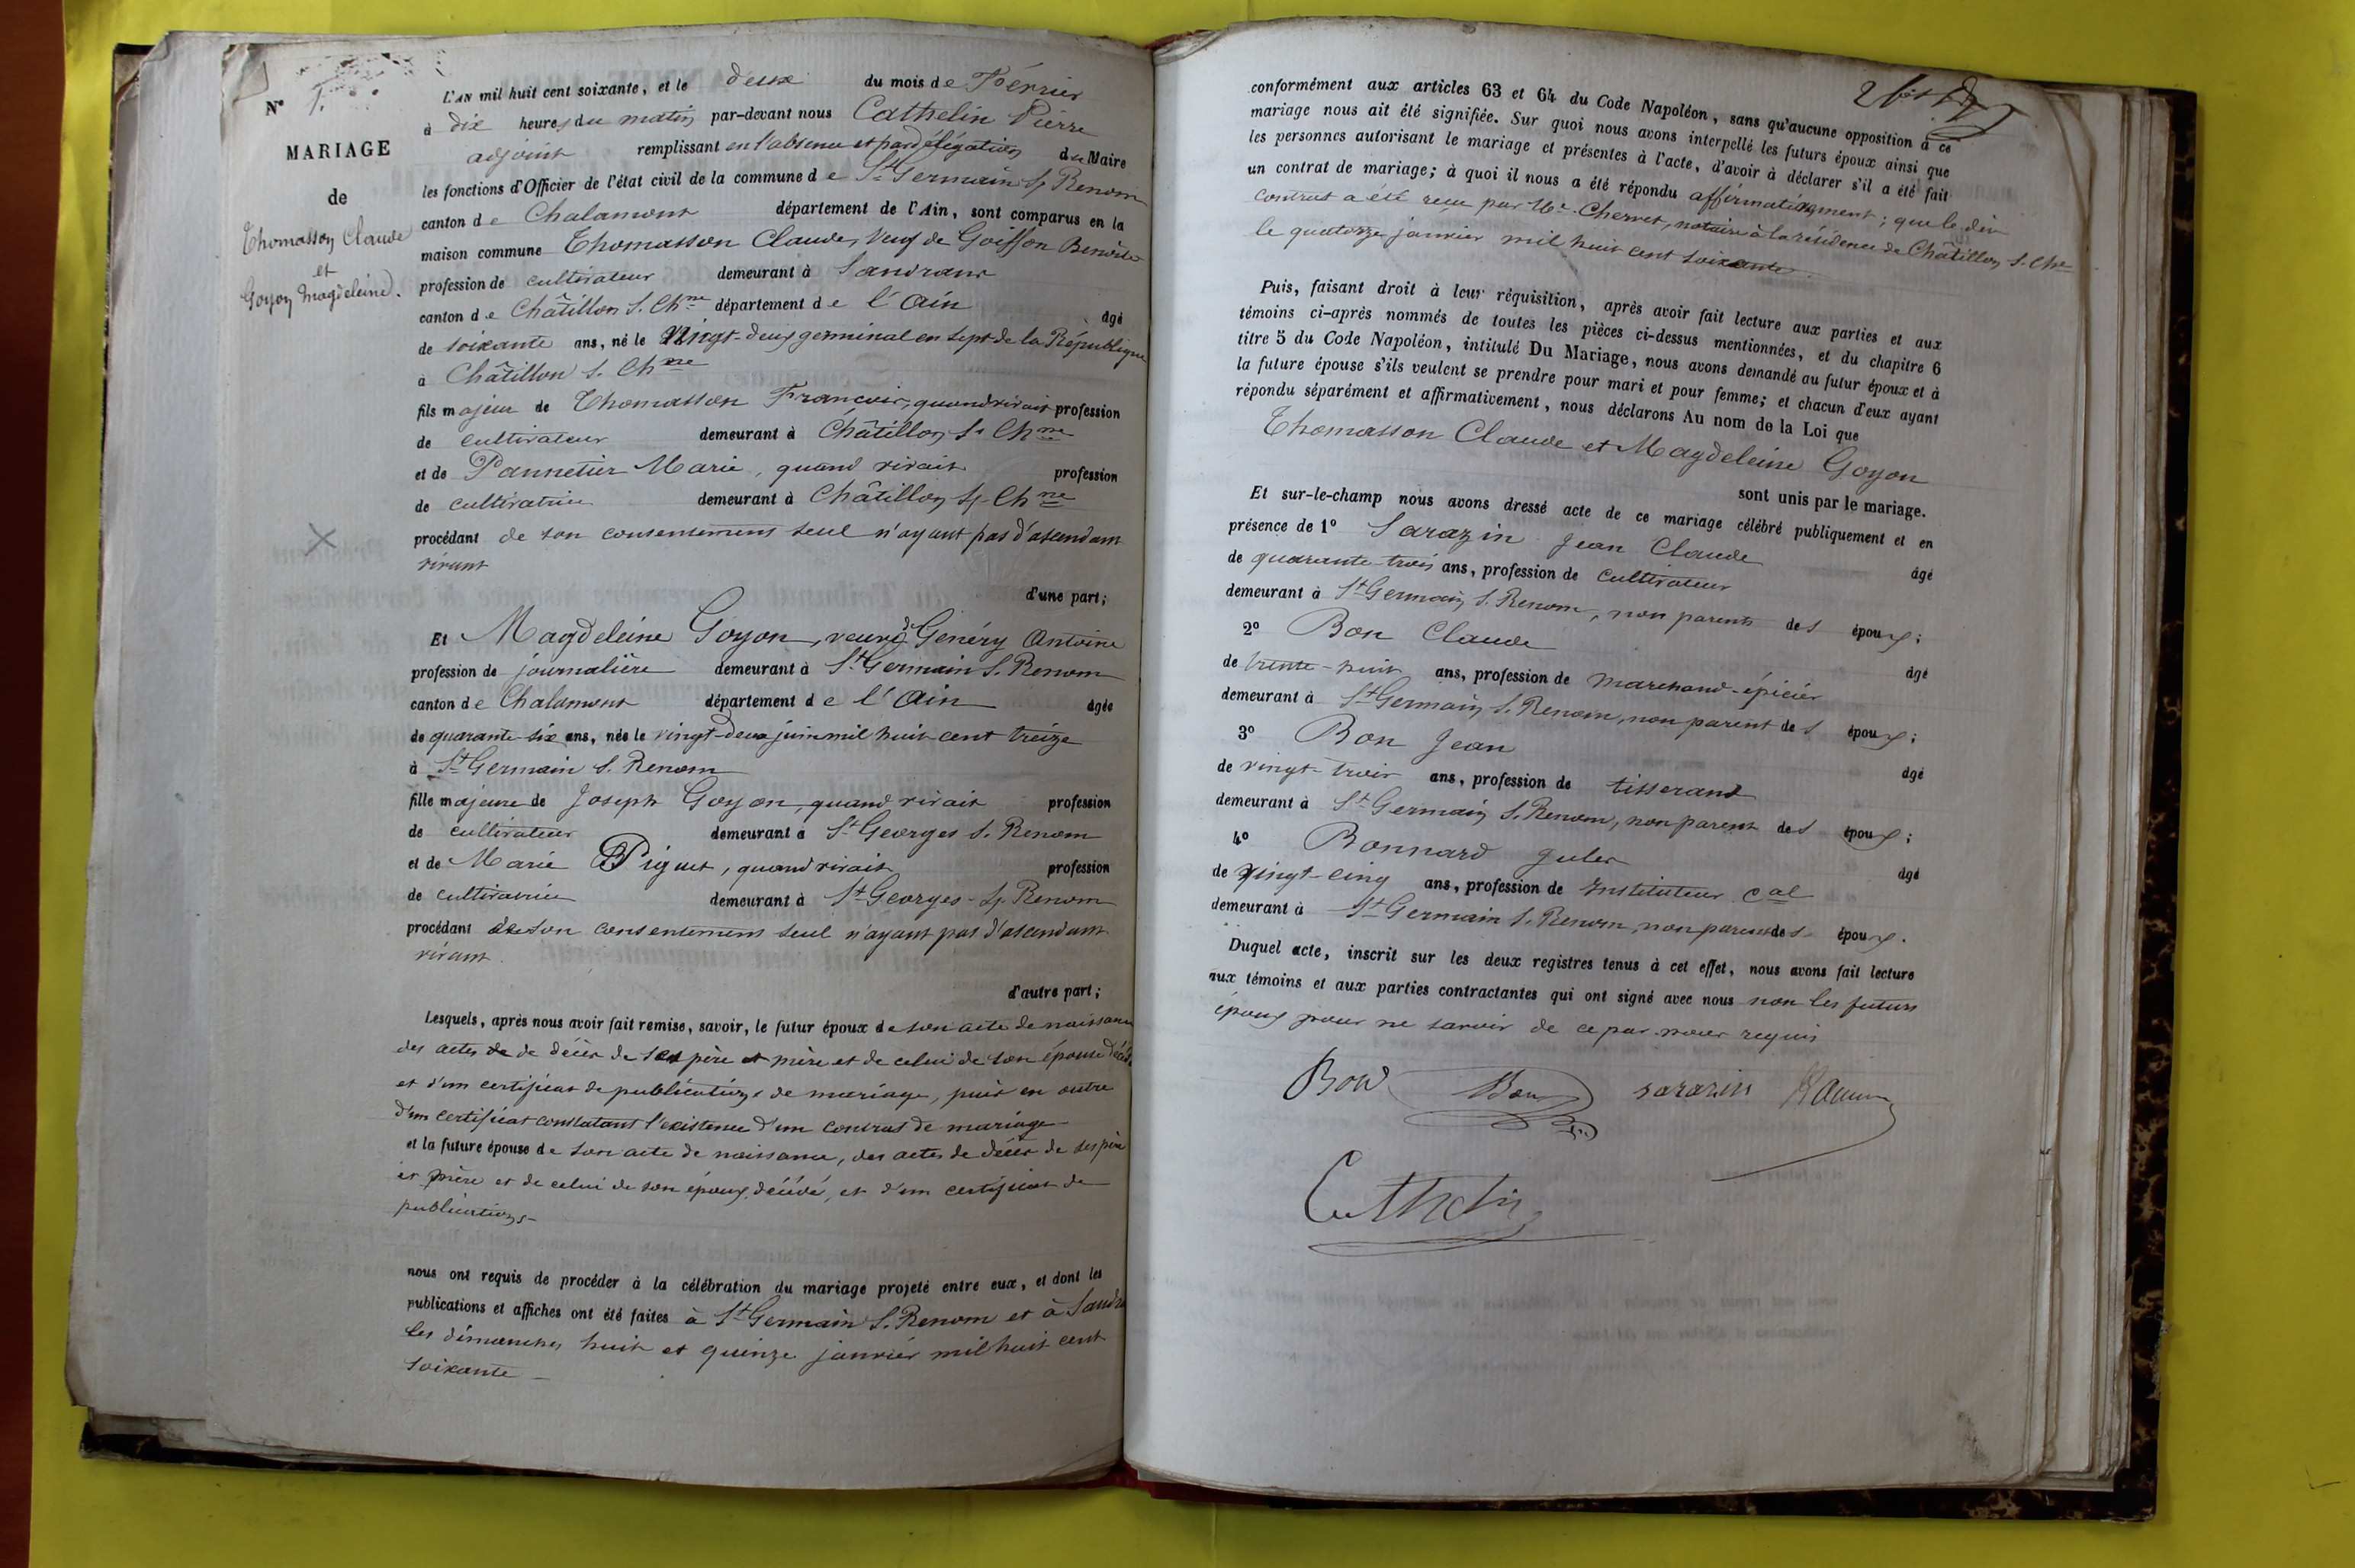 N° 1.
MARIAGE
de
Thomasson Claude
et
Goyon Magdeleine.
L'AN mil huit cent soixante, et le deux du mois de Février
à dix heures du matin par-devant nous Cathelin Pierre
adjoint remplissant en l'absence et par délégation du Maire
les fonctions d'Officier de l'état civil de la commune de St Germain s. Renom
canton de Chalamont département de l'Ain, sont comparus en la
maison commune Thomasson Claude, veuf de Goiffon Benoite
profession de cultivateur demeurant à Sandrans
canton de Châtillon s. Chne département de l'Ain âgé
de soixante ans, né le vingt-deux germinal en sept de la République
à Châtillon s. Chne
fils majeur de Thomasson Francois, quand vivait profession
de cultivateur demeurant à Châtillon s. Chne
et de Pannetier Marie, quand vivait profession
de cultivatrice demeurant à Châtillon s. Chne
procédant de son consentement seul n'ayant pas d'ascendant
vivant
d'une part;
Et Magdeleine Goyon, veuve de Genéry Antoine
profession de journalière demeurant à St Germain s. Renom
canton de Chalamont département de l'Ain âgée
de quarante-six ans, née le vingt-deux juin mil huit cent treize
à St Germain s. Renom
fille majeure de Joseph Goyon, quand vivait profession
de cultivateur demeurant à St Georges s. Renom
et de Marie Piguet, quand vivait profession
de cultivatrice demeurant à St Georges s. Renom
procédant de son consentement seul n'ayant pas d'ascendant
vivant.
d'autre part;
Lesquels, après nous avoir fait remise, savoir, le futur époux de son acte de naissance
des actes de de décès de ses père et mère et de celui de son épouse
et d'un certificat de publications de mariage, puis en outre
d'un certificat constatant l'existence d'un contrat de mariage
et la future épouse de son acte de naissance, des actes de décès de ses père
et mère et de celui de son époux décédé, et d'un certificat de
publications
nous ont requis de procéder à la célébration du mariage projeté entre eux, et dont les
publications et affiches ont été faites à St Germain s. Renom et à
les dimanches huit et quinze janvier mil huit cent
soixante
conformément aux articles 63 et 64 du Code Napoléon, sans qu'aucune opposition à ce
mariage nous ait été signifiée. Sur quoi nous avons interpellé les futurs époux ainsi que
les personnes autorisant le mariage et présentes à l'acte, d'avoir à déclarer s'il a été fait
un contrat de mariage; à quoi il nous a été répondu affirmativement; que le dit
contrat a été reçu par Me Chervet, notaire à la résidence de Châtillon s. Chne
le quatorze janvier mil huit cent soixante
Puis, faisant droit à leur réquisition, après avoir fait lecture aux parties et aux
témoins ci-après nommés de toutes les pièces ci-dessus mentionnées, et du chapitre 6
titre 5 du Code Napoléon, intitulé Du Mariage, nous avons demandé au futur époux et à
la future épouse s'ils veulent se prendre pour mari et pour femme; et chacun d'eux ayant
répondu séparément et affirmativement, nous déclarons Au nom de la Loi que
Thomasson Claude et Magdeleine Goyon
sont unis par le mariage.
Et sur-le-champ nous avons dressé acte de ce mariage célébré publiquement et en
présence de 1° Sarazin Jean Claude âgé
de quarante-trois ans, profession de cultivateur
demeurant à St Germain s. Renom, non parents des époux;
2° Bon Claude âgé
de trente-huit ans, profession de marchand-épicier
demeurant à St Germain s. Renom, non parent des époux;
3° Bon Jean âgé
de vingt-trois ans, profession de tisserand
demeurant à St Germain s. Renom, non parent des époux;
4° Bonnard Jules âgé
de vingt-cinq ans, profession de Instituteur cal
demeurant à St Germain s. Renom, non parent des époux.
Duquel acte, inscrit sur les deux registres tenus à cet effet, nous avons fait lecture
aux témoins et aux parties contractantes qui ont signé avec nous non les futurs
époux pour ne savoir de ce par nous requis
Bon Bon sarazin
Cathelin